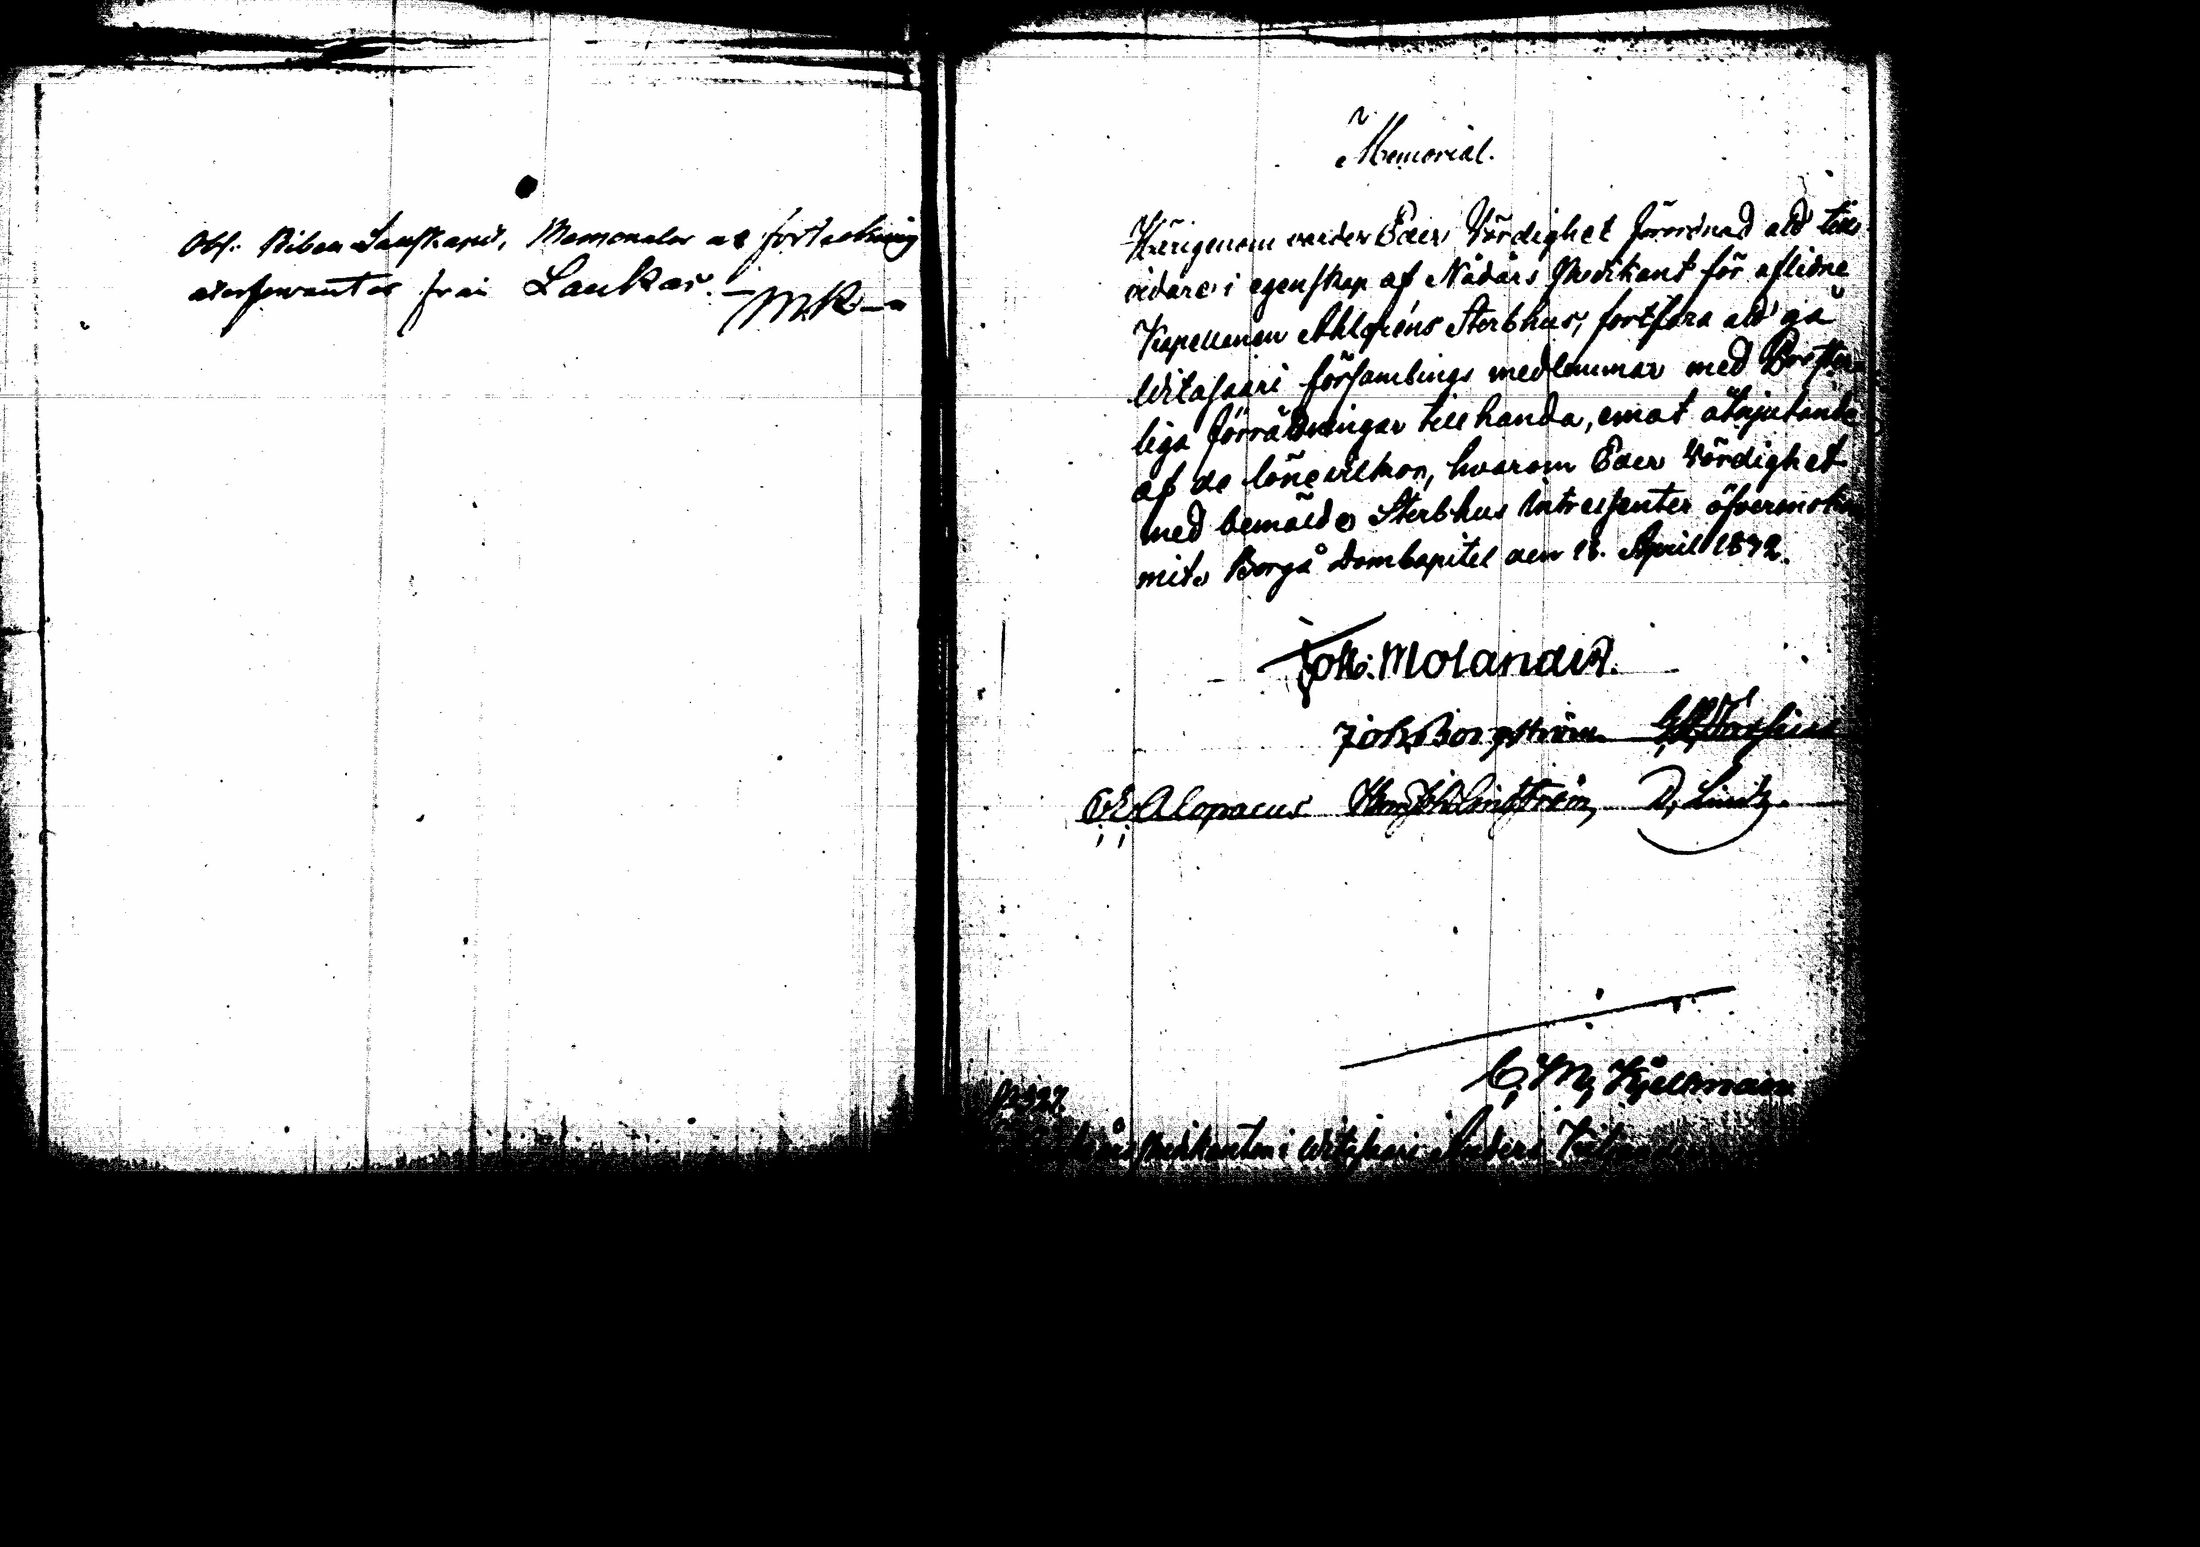 Obs: Memorialer ae förteckning
återsändes från Laukas. MR
Memorial.
Härigenom varder Eder Vördighet förordnad att till-
vidare i egenskap af Nådårs Predikant för aflidne
Kapellanen Ahlgréns Sterbhus, fortfara att gå
Witasaari församlings medlemmar med Prester-
liga förrättningar till handa, emot åtnjutande
af de lönevilkor, hvarom Eder Vördighet
med bemälde Sterbhus Intressenter öfverenskom-
mit. Borgå Domkapitel den 13. April 1842.
Joh: Molander.
Joh. Borgström
Alopaeus D. Lindh.
C. M. Kjellman
N 327.
Nådårspredikanten i Witasaari Anders